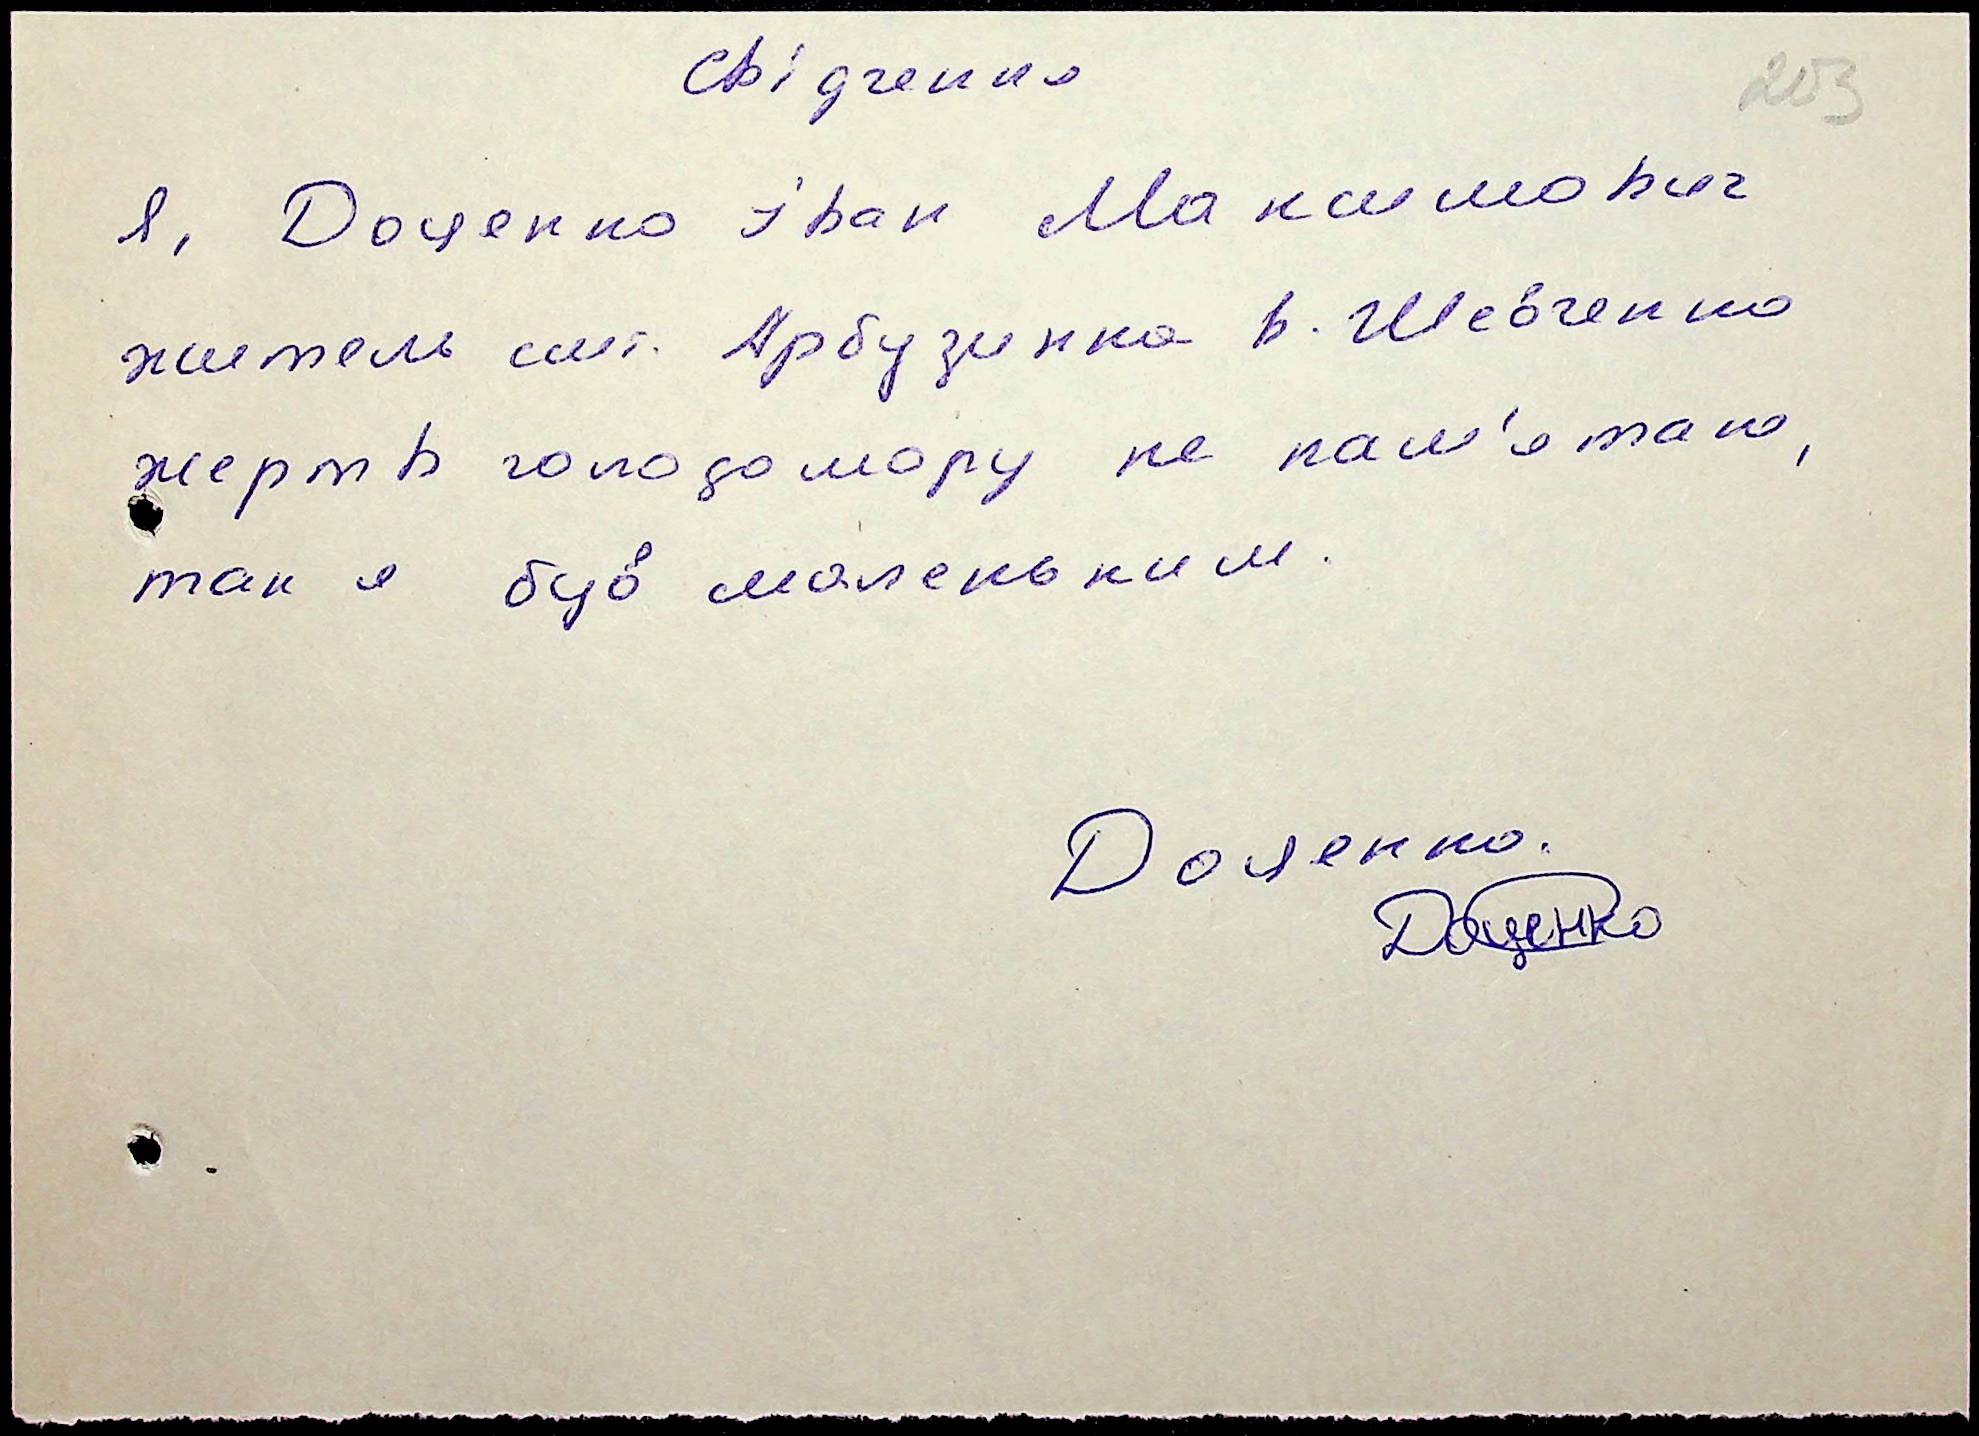 Свідчення
203
Я, Доценко Іван Максимович
житель смт. Арбузинка в. Шевченко
жертв голодомору не пам'ятаю,
так я був маленьким.
Доценко.
Доценко